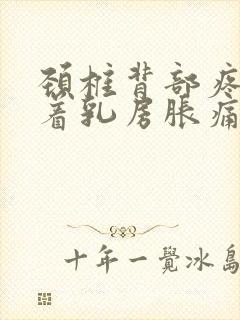 頚柱背部疼
着乳房脹痛
十年一覺冰島